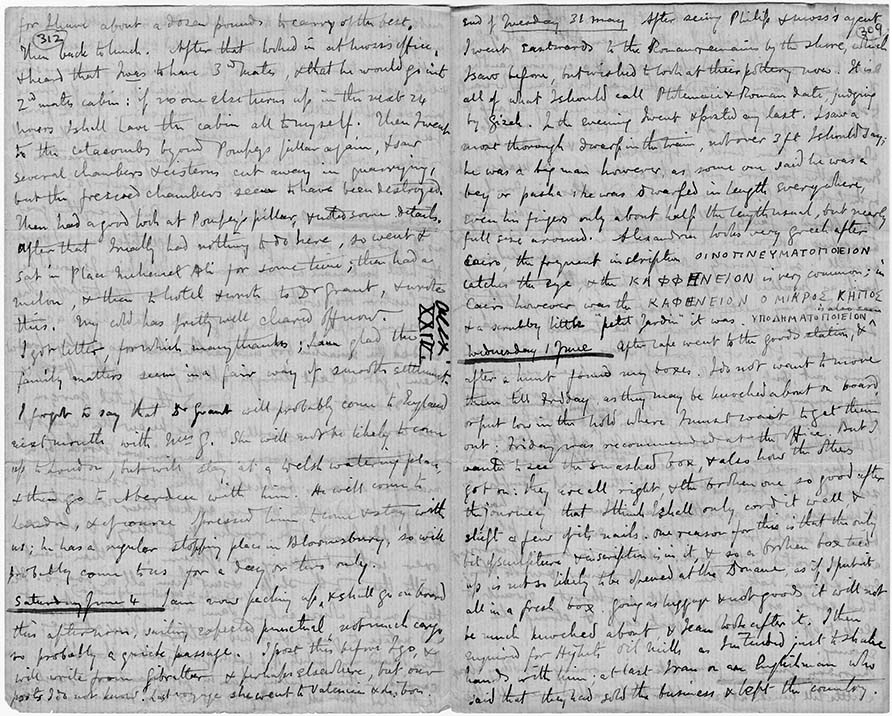 312
for I have about a dozen pounds to carry of the best.
Then back to lunch. After that looked in at Moss's office,
& heard that I was to have 3rd mates, & that he would go into
2nd mates cabin: if no one else turns up in the next 24
hours I shall have the cabin all to myself. Then I went
to the catacombs beyond Pompey's pillar again, & saw
several chambers & cisterns cut away in quarrying,
but the frescoed chambers seem to have been destroyed.
Then had a good look at Pompey's pillar, & noted some details.
After that I really had nothing to do here, so went &
sat in Place Mehemet Ali for some time; then had a
melon, & then to hotel & wrote to Dr Grant, & wrote
this. My cold has pretty well cleared off now.
I got letter, for which many thanks; I am glad the
family matters seem in a fair way of smooth settlement.
I forgot to say that Dr Grant will probably come to England
next month with Mrs G. She will not be likely to come
up to London, but will stay at a Welsh watering place,
& then go to Aberdeen with him. He will come to
London, & of course I pressed him to come & stay with
us; he has a regular stopping place in Bloomsbury, so will
probably come to us for a day or two only.
Saturday June 4 I am now packing up, & shall go on board
this afternoon, sailing expected punctual, not much cargo,
so probably a quick passage. I post this before I go, &
will write from Gibraltar & perhaps elsewhere, but our
ports I do not know. Last voyage she went to Valencia & Lisbon.
XXIII
309
End of Tuesday 31 May After seeing Philip & Moss's agent
I went eastwards to the Roman remains by the shore, which
I saw before, but wished to look at their pottery now. It is
all of what I should call Ptolemaic & Roman date, judging
by Gizeh. In the evening I went & posted my last. I saw a
most thorough dwarf in the train, not over 3 ft I should say;
he was a big man however, as some one said he was a
bey or pasha: he was dwarfed in length everywhere,
even his fingers only about half the length usual, but nearly
full size around. Alexandria looks very Greek after
Cairo, the frequent inscription ΟΙΝΟΠΝΕΥΜΑΤΟΠΟΙΕΙΟΝ
catches the eye & the ΚΑΦΦΗΝΕΙΟΝ is very common; in
Cairo however was the ΚΑΦΕΝΕΙΟΝ Ο ΜΙΚΡΟΣ ΚΗΠΟΣ
& a scrubby little "petit Jardin" it was. ΥΠΟΔΗΜΑΤΟΠΟΙΕΙΟΝ is also seen
Wednesday 1 June After cafe went to the goods station, &
after a hunt found my boxes. I do not want to move
them till Friday, as they may be knocked about on board
or put low in the hold where I must wait to get them
out: Friday was recommended at the office. But I
wanted to see the smashed box, & also how the others
got on: they are all right, & the broken one so good after
the journey, that I think I shall only cord it well &
shift a few of its nails. One reason for this is that the only
bit of sculpture & inscription is in it & so a broken box tied
up is not so likely to be opened at the Douane, as if I put it
all in a fresh box. going as luggage & not goods it will not
be much knocked about & I can look after it. I then
enquired for Highet's oil mills as I intended just to shake
hands with him: at last I ran on an Englishman who
said that they had sold the business & left the country.